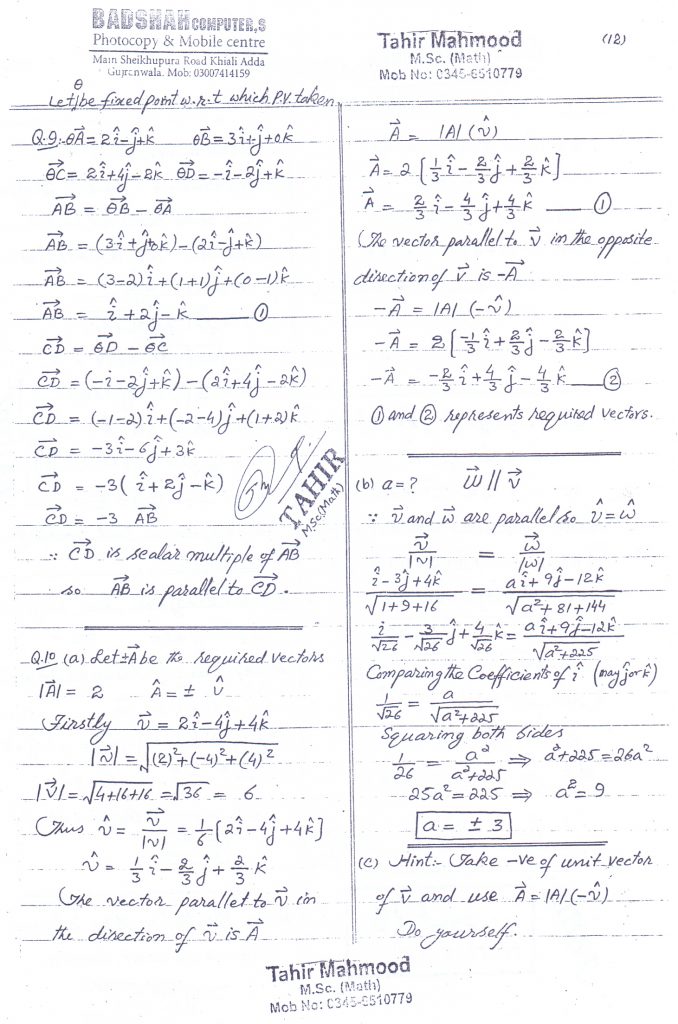 BADSHAH COMPUTER,S
Photocopy & Mobile centre
Main Sheikhupura Road Khiali Adda
Gujranwala. Mob: 03007414159
Tahir Mahmood
M.Sc. (Math)
Mob No: 0345-6510779
(12)
Let θ be fixed point w.r.t which P.V. taken
Q.9:- θA⃗ = 2î-ĵ+k̂   θB⃗ = 3î+ĵ+0k̂
θC⃗ = 2î+4ĵ-2k̂   θD⃗ = -î-2ĵ+k̂
AB⃗ = θB⃗ - θA⃗
AB⃗ = (3î+ĵ+0k̂)-(2î-ĵ+k̂)
AB⃗ = (3-2)î+(1+1)ĵ+(0-1)k̂
AB⃗ = î+2ĵ-k̂ —— ①
CD⃗ = θD⃗ - θC⃗
CD⃗ = (-î-2ĵ+k̂)-(2î+4ĵ-2k̂)
CD⃗ = (-1-2)î+(-2-4)ĵ+(1+2)k̂
CD⃗ = -3î-6ĵ+3k̂
CD⃗ = -3(î+2ĵ-k̂)
CD⃗ = -3 AB⃗
∵ CD⃗ is scalar multiple of AB⃗
so AB⃗ is parallel to CD⃗.
TAHIR
M.Sc.(Math)
Q.10 (a) Let ±A⃗ be the required vectors
|A⃗| = 2   Â = ± v̂
Firstly v⃗ = 2î-4ĵ+4k̂
|v⃗| = √(2)²+(-4)²+(4)²
|v⃗| = √4+16+16 = √36 = 6
Thus v̂ = v⃗/|v| = 1/6[2î-4ĵ+4k̂]
v̂ = 1/3 î - 2/3 ĵ + 2/3 k̂
The vector parallel to v⃗ in
the direction of v⃗ is A⃗
A⃗ = |A|(v̂)
A⃗ = 2[1/3 î - 2/3 ĵ + 2/3 k̂]
A⃗ = 2/3 î - 4/3 ĵ + 4/3 k̂ —— ①
The vector parallel to v⃗ in the opposite
direction of v⃗ is -A⃗
-A⃗ = |A|(-v̂)
-A⃗ = 2[-1/3 î + 2/3 ĵ - 2/3 k̂]
-A⃗ = -2/3 î + 4/3 ĵ - 4/3 k̂ —— ②
① and ② represents required vectors.
(b) a = ?   w⃗ || v⃗
∵ v⃗ and w⃗ are parallel so v̂ = ŵ
v⃗/|v| = w⃗/|w|
î-3ĵ+4k̂/√1+9+16 = aî+9ĵ-12k̂/√a²+81+144
î/√26 - 3/√26 ĵ + 4/√26 k̂ = aî+9ĵ-12k̂/√a²+225
Comparing the Coefficients of î (may ĵ or k̂)
1/√26 = a/√a²+225
Squaring both sides
1/26 = a²/a²+225 ⇒ a²+225 = 26a²
25a² = 225 ⇒ a² = 9
a = ± 3
(c) Hint:- Take -ve of unit vector
of v⃗ and use A⃗ = |A|(-v̂)
Do yourself.
Tahir Mahmood
M.Sc. (Math)
Mob No: 0345-6510779